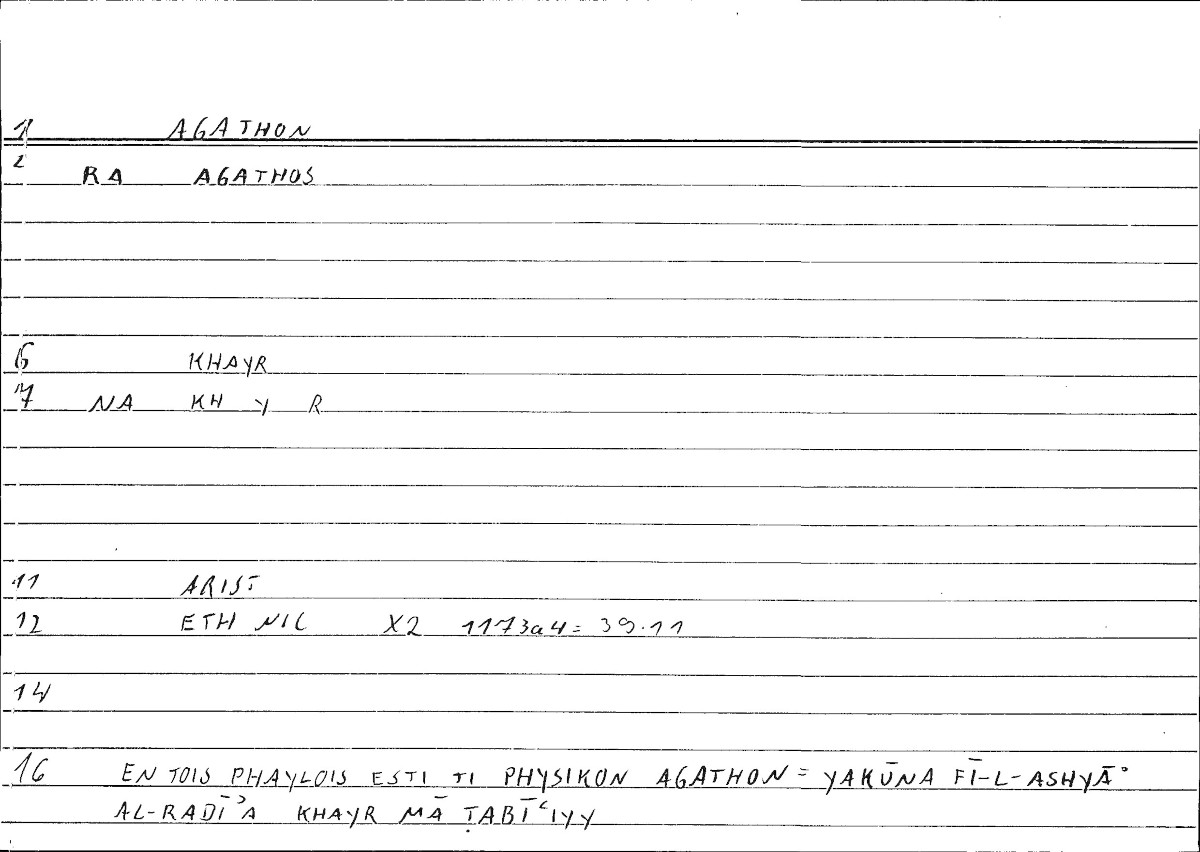 1 AGATHON
2 RA AGATHOS
6 KHAYR
7 NA KH Y R
11 ARIST
12 ETH NIC X2 1173a4 = 39.11
14
16 EN TOIS PHAYLOIS ESTI TI PHYSIKON AGATHON = YAKŪNA FĪ-L-ASHYĀʾ
AL-RADĪʾA KHAYR MĀ ṬABĪʿIYY